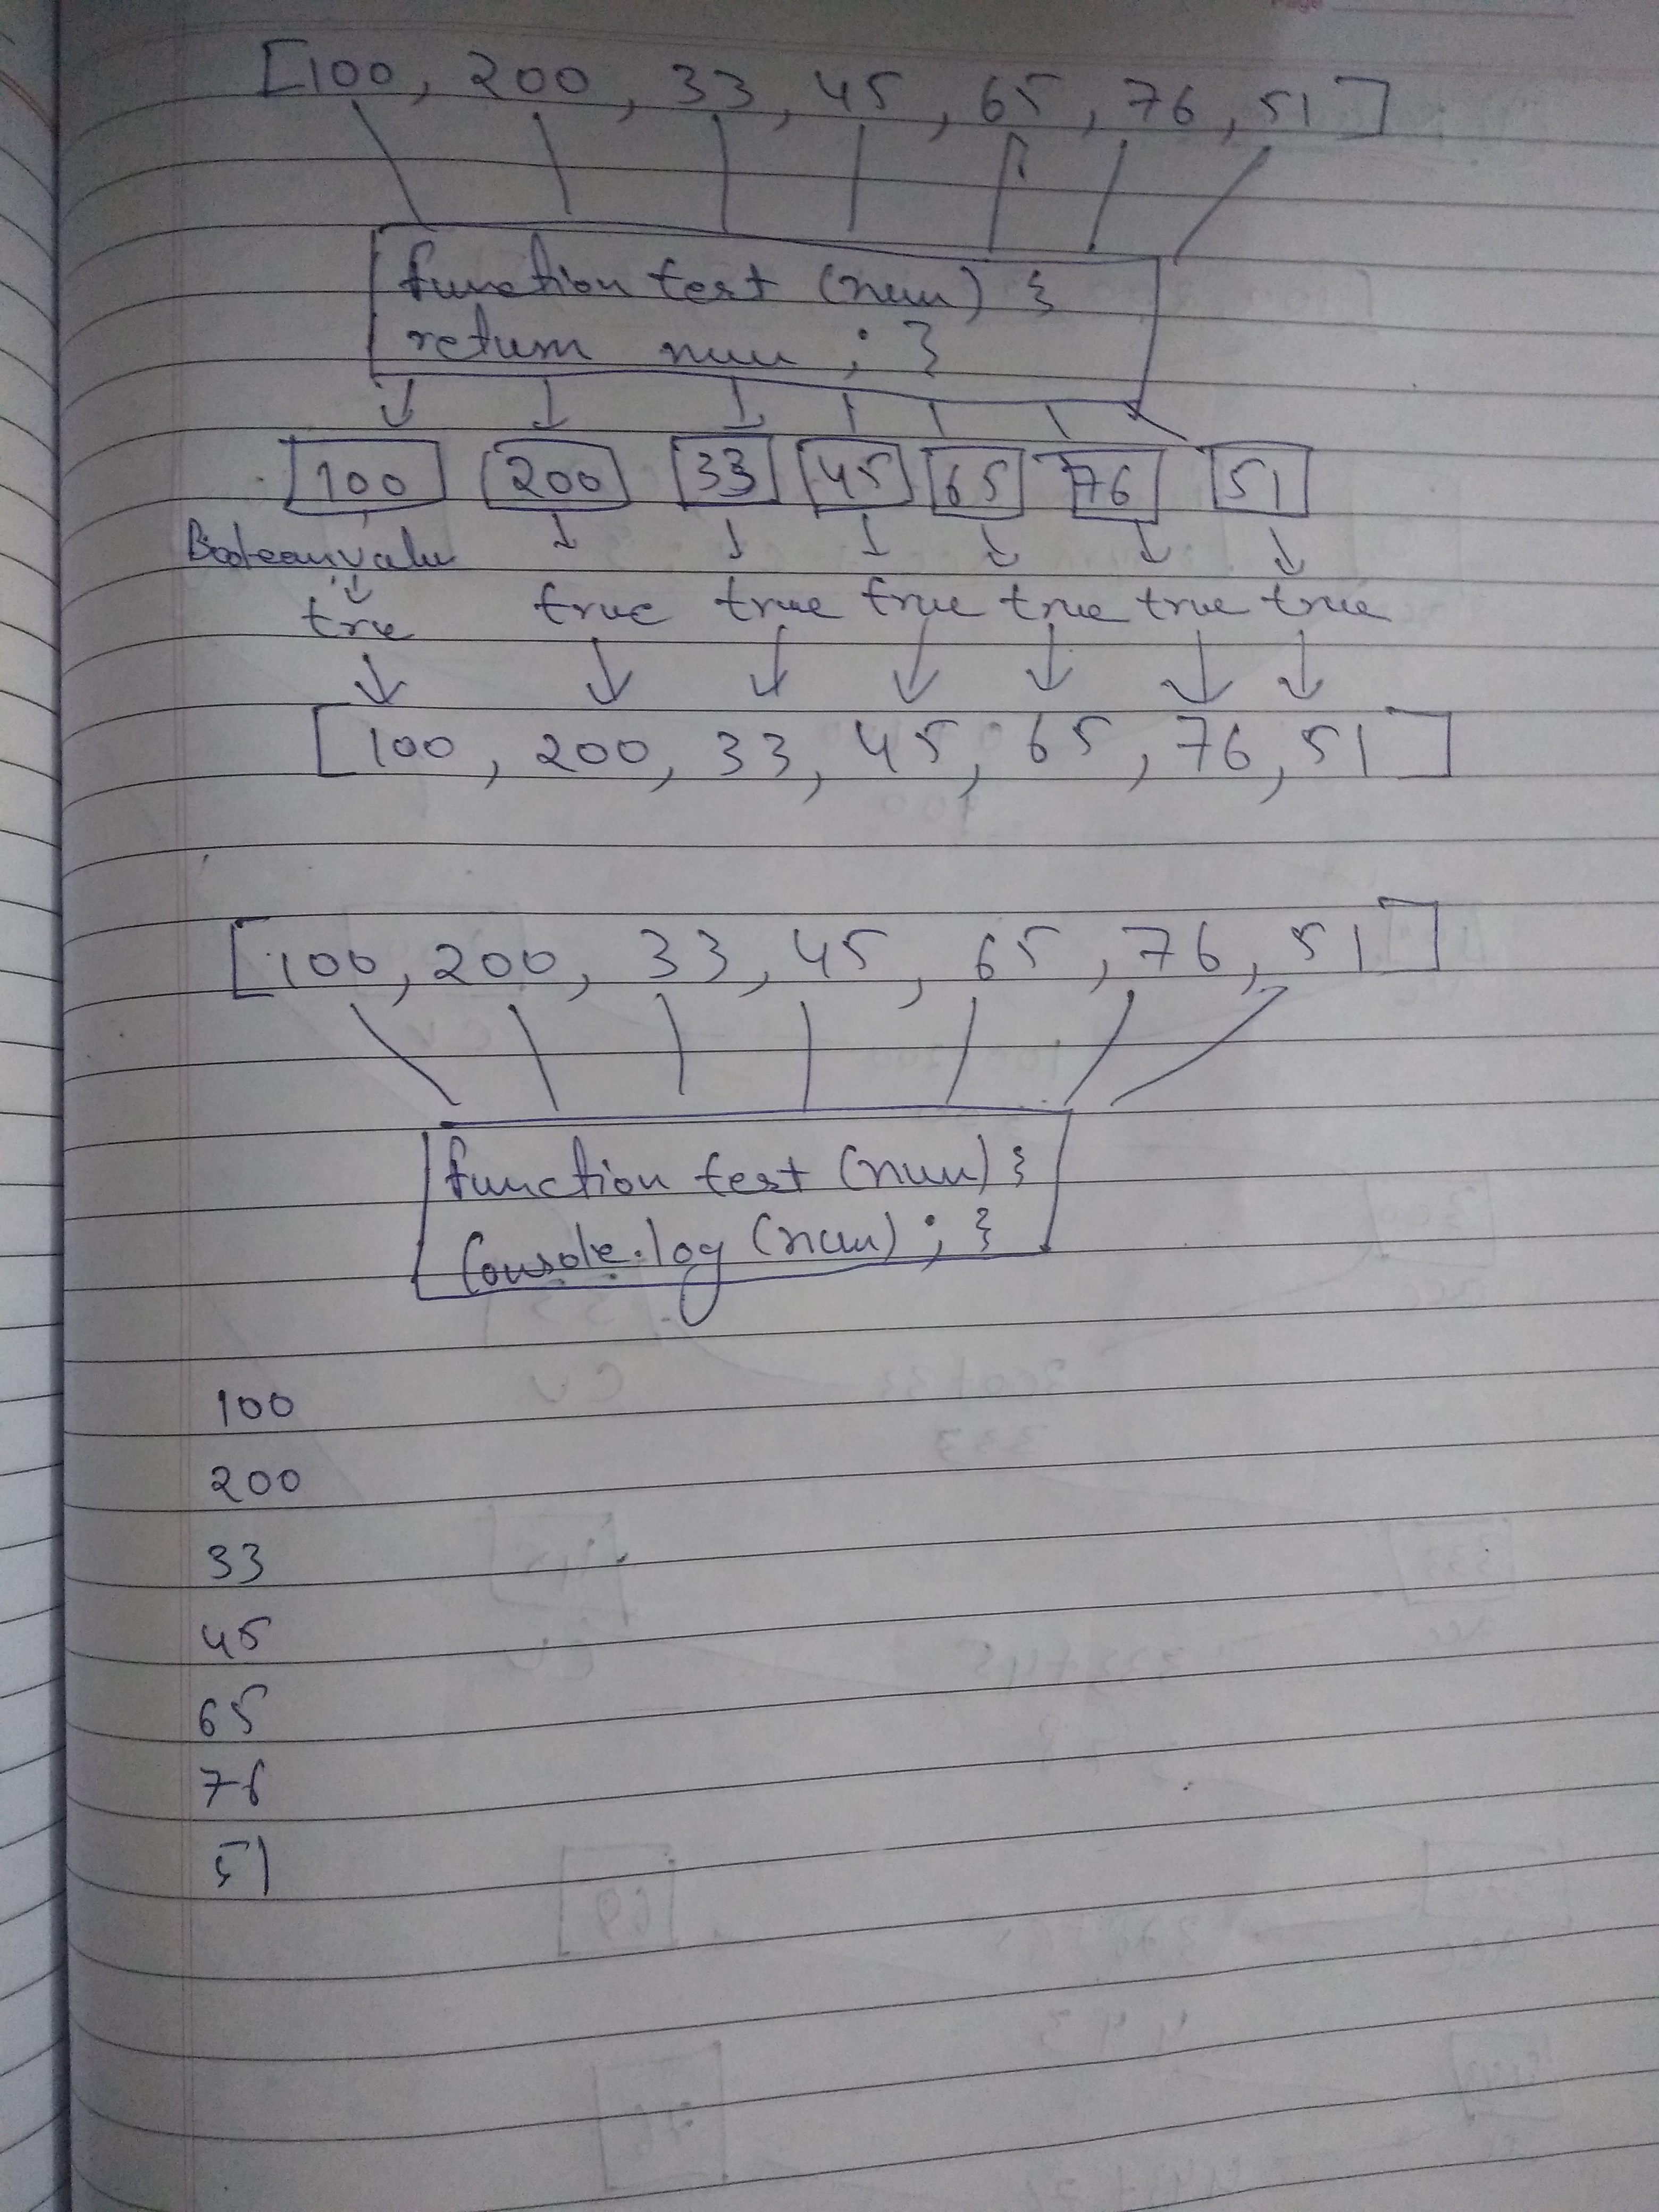 [100, 200, 33, 45, 65, 76, 51]
function test (num) {
return num ; }
100 200 33 45 65 76 51
Boolean value
true true true true true true true
[100, 200, 33, 45, 65, 76, 51]
[100, 200, 33, 45, 65, 76, 51]
function test (num) {
Console.log (num) ; }
100
200
33
45
65
76
51